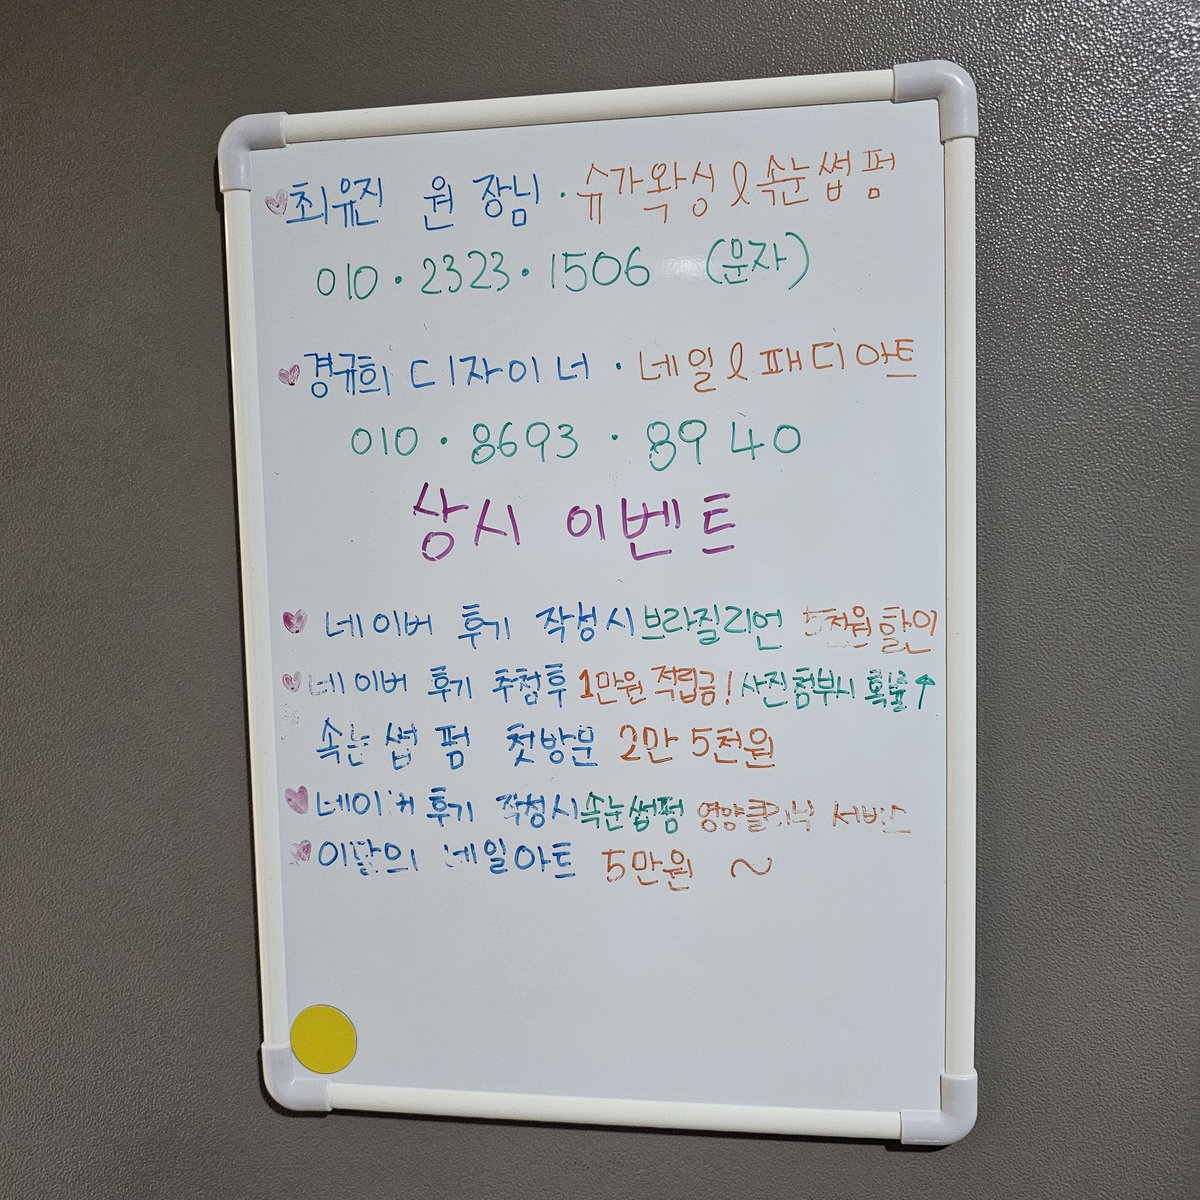 ♥최유진 원장님 · 슈가왁싱 & 속눈썹펌
010 · 2323 · 1506 (문자)
♥경규희 디자이너 · 네일 & 패디아트
010 · 8693 · 8940
상시 이벤트
♥ 네이버 후기 작성시 브라질리언 5천원 할인
♥ 네이버 후기 추첨후 1만원 적립금! 사진첨부시 확률↑
속눈썹펌 첫방문 2만 5천원
♥ 네이버 후기 작성시 속눈썹펌 영양클리닉 서비스
♥ 이달의 네일아트 5만원 ~